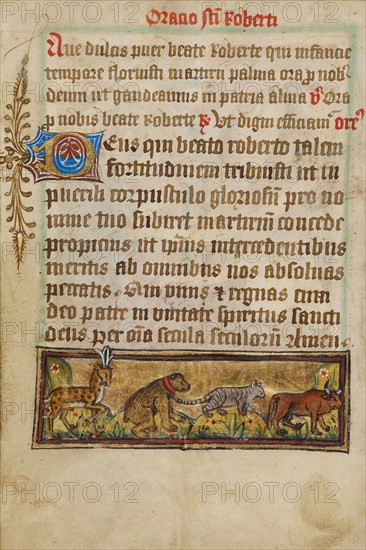 Oracio sti Roberti
Aue dulcis puer beate Roberte qui infancie
tempore floruisti martirii palma ora p nob
deum ut gaudeamus in patria alma V Ora
p nobis beate Roberte R Ut digni efficiam or
Deus qui beato roberto talem
fortitudinem tribuisti ut in
puerili corpusculo gloriosum pro no
mine tuo subiret martirium concede
propicius ut ipius intercedentibus
meritis ab omnibus nos absoluas
peccatis. Qui viuis et regnas cum
deo patre in vnitate spiritus sancti
deus per oia secula seculorum Amen
PHOTO 12